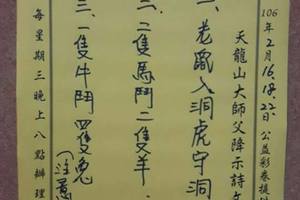 106年2月16.18.22.公益彩卷提供
天龍山大師父降示詩文
一、老鼠入洞虎守洞
二、二隻馬鬥二隻羊.
三、一隻牛鬥四隻兔
每星期三晚上八點辦理